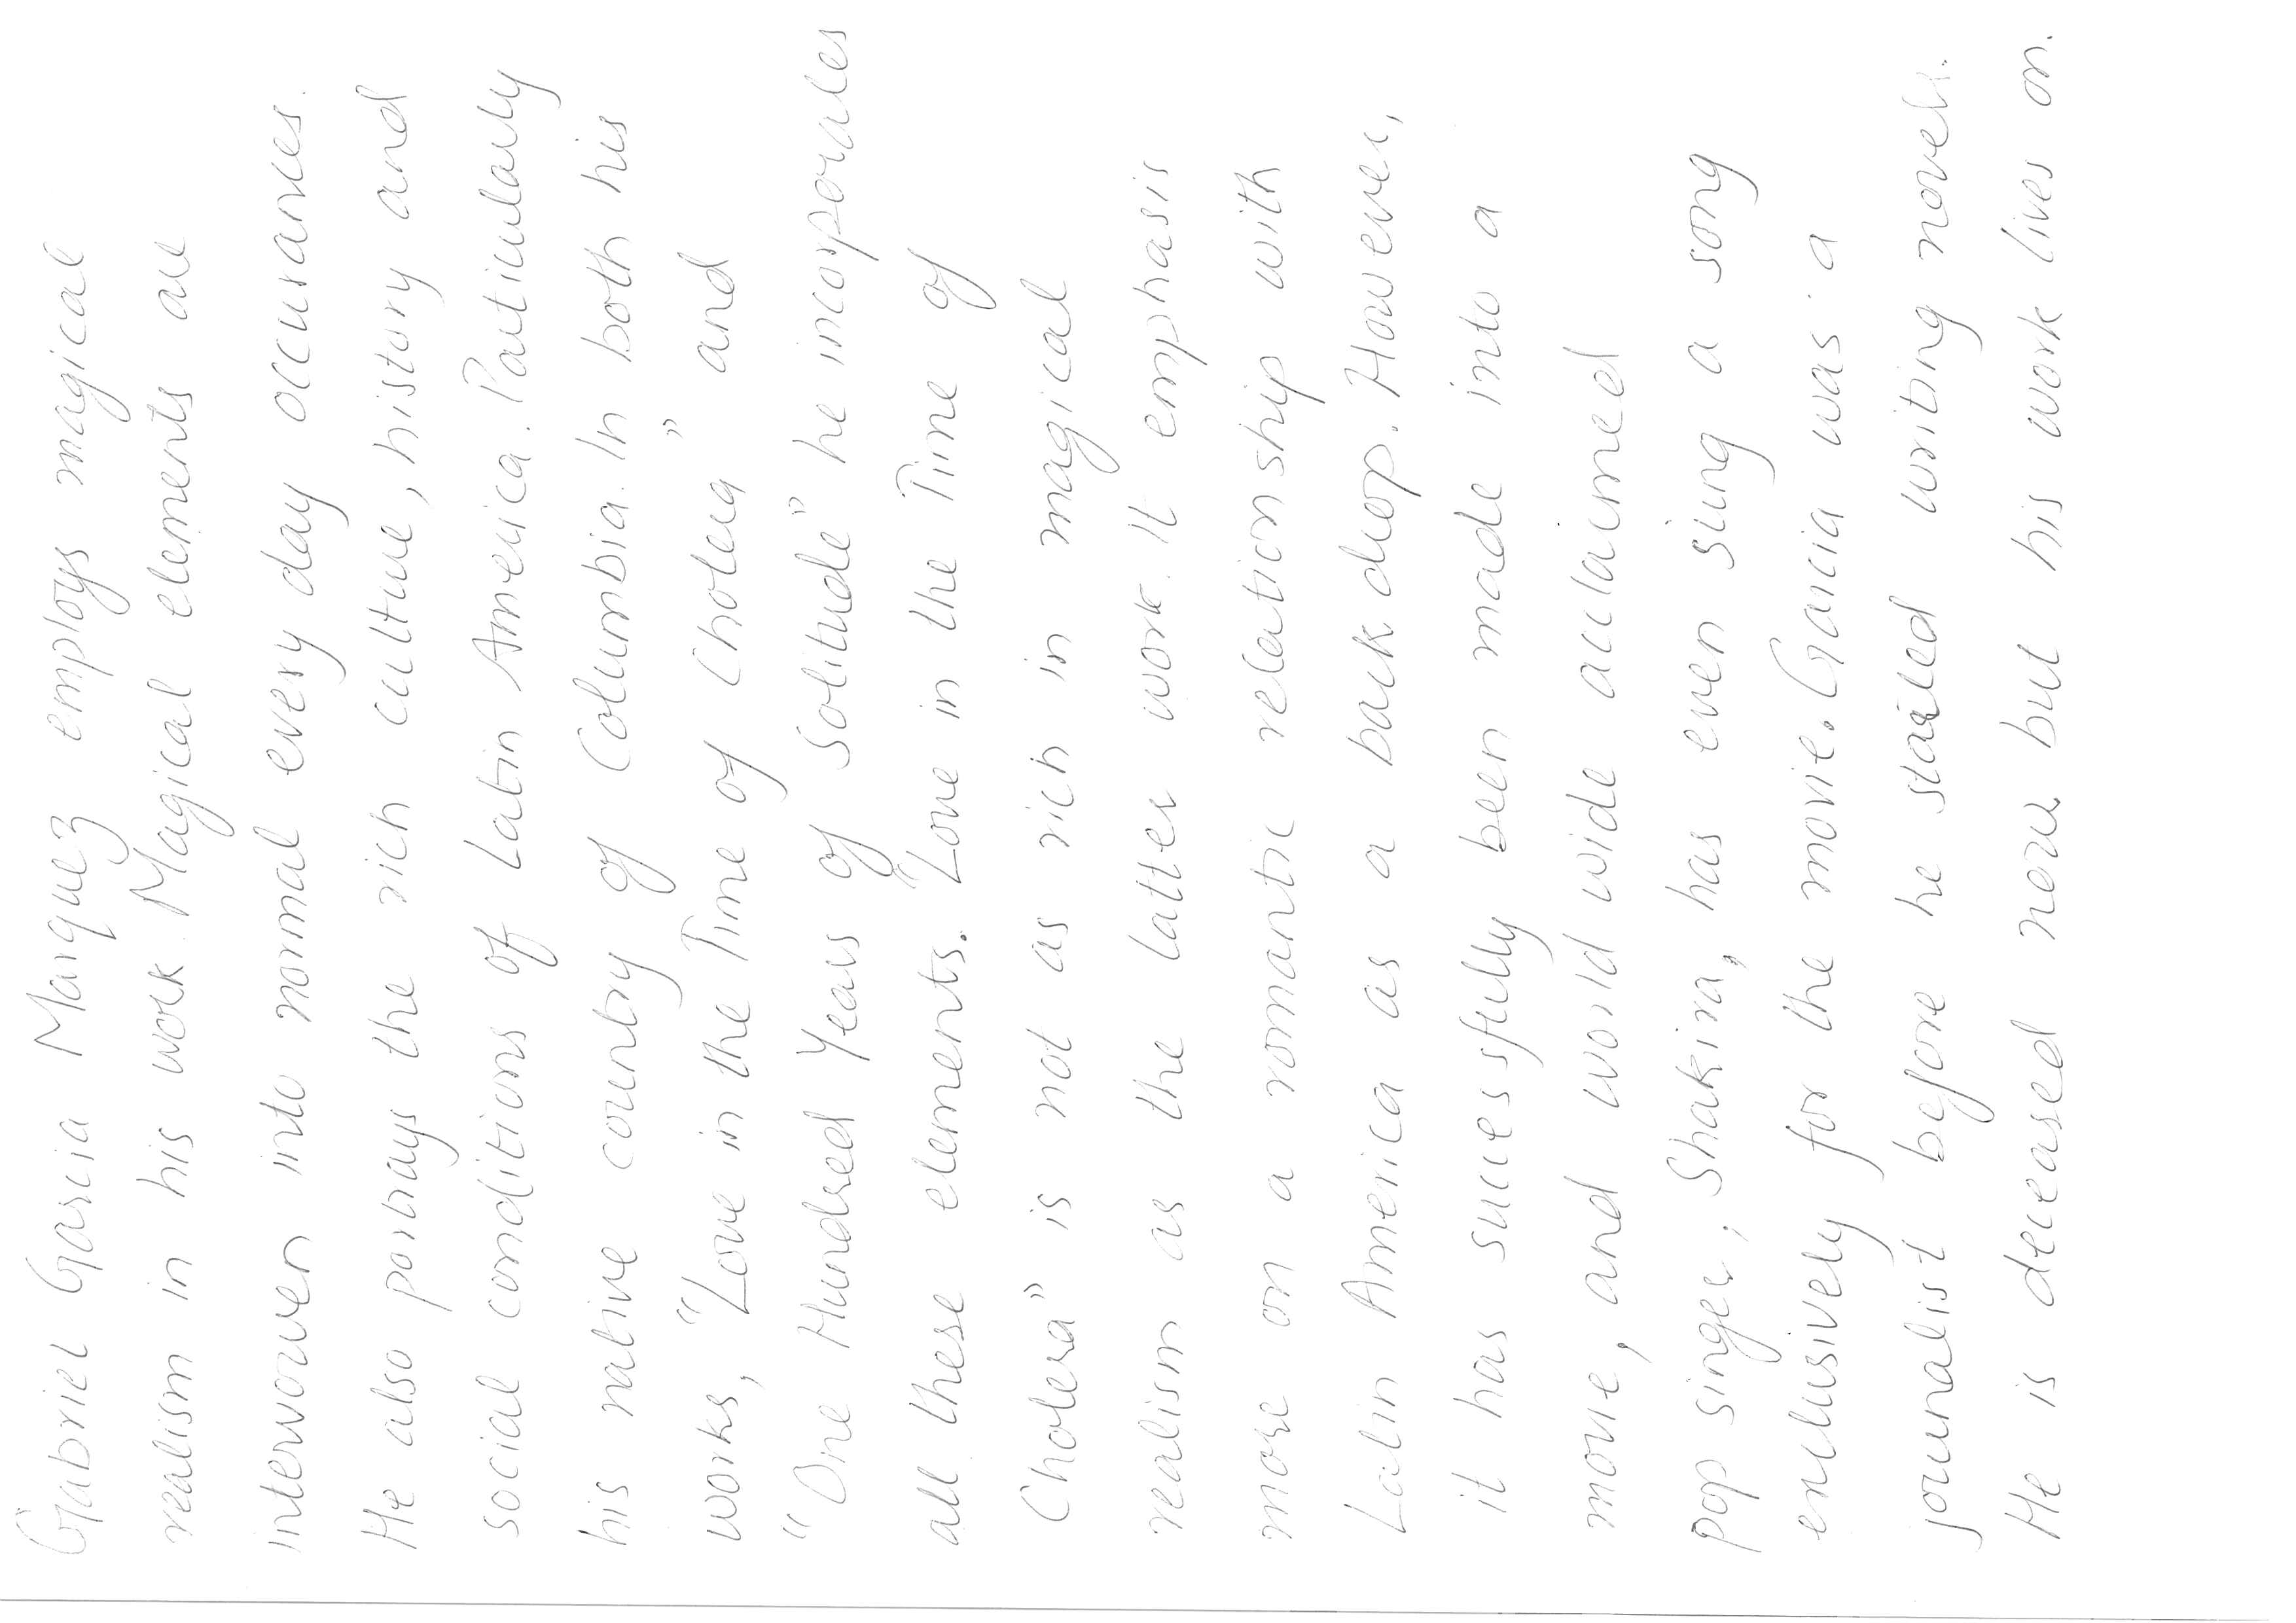 Gabriel Garcia Marquez employs magical
realism in his work. Magical elements are
interwowen into normal every day occurances.
He also portrays the rich culture, history and
social conditions of Latin America. Particularly
his native country of Columbia. In both his
works, "Love in the Time of Cholera" and
"One Hundred Years of Solitude" he incorporates
all these elements. "Love in the Time of
Cholera" is not as rich in magical
realism as the latter work. It emphasis
more on a romantic relationship with
Latin America as a back drop. However,
it has successfully been made into a
movie, and world wide acclaimed
pop singer, Shakira, has even sung a song
exclusively for the movie. Garcia was a
journalist before he started writing novels.
He is deceased now but his work lives on.